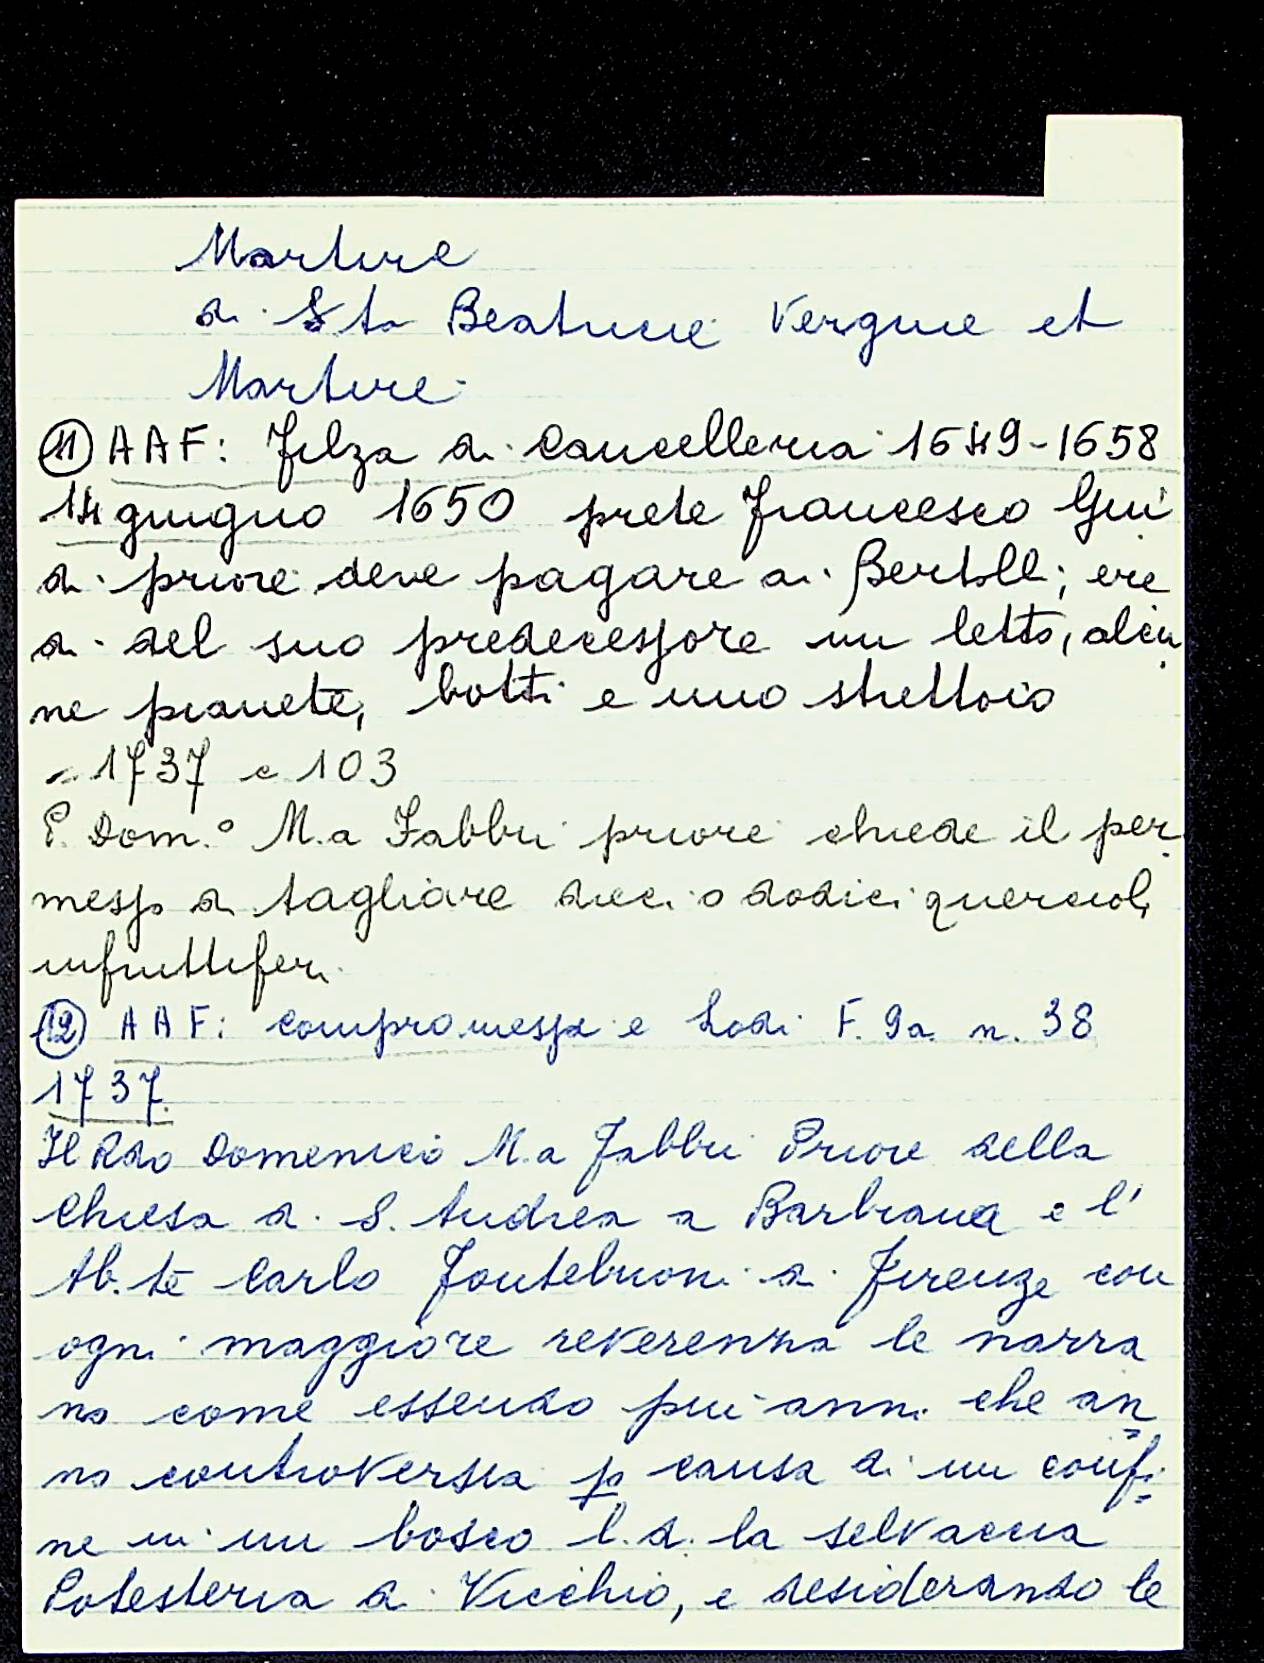 Martire
di Sta Beatrice Vergine et
Martire
11 AAF: Filza di Cancelleria 1649-1658
14 giugno 1650 prete Francesco Gui
di priore deve pagare ai Bertolli, ere
di del suo predecessore un letto, alcu
ne pianete, botti e uno strettoio
= 1737 c 103
P. Dom.° M.a Fabbri priore chiede il per
messo di tagliare dieci o dodici quercioli
infruttiferi
12 AAF: compromessi e Lodi F. 9a n. 38
1737.
Il Rdo Domenico M.a Fabbri Priore della
Chiesa di S. Andrea a Barbiana e l'
Ab.te Carlo Fontebuoni di Firenze con
ogni maggiore reverenza le narra
no come essendo più anni che an
no controversia p causa di un confi
ne in un bosco l.d. la selvaccia
Potesteria di Vicchio, e desiderando le